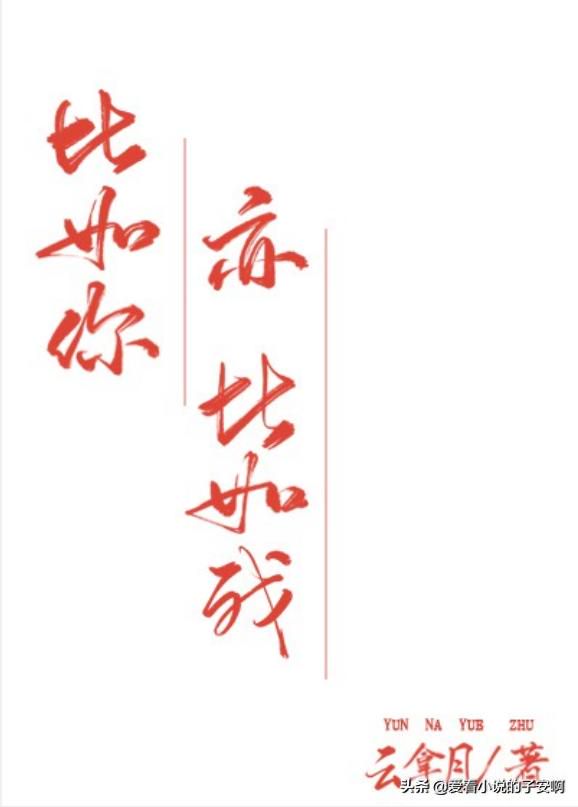 比如你
亦 比如我
YUN NA YUE ZHU
云拿月/著
头条 @爱看小说的子安啊